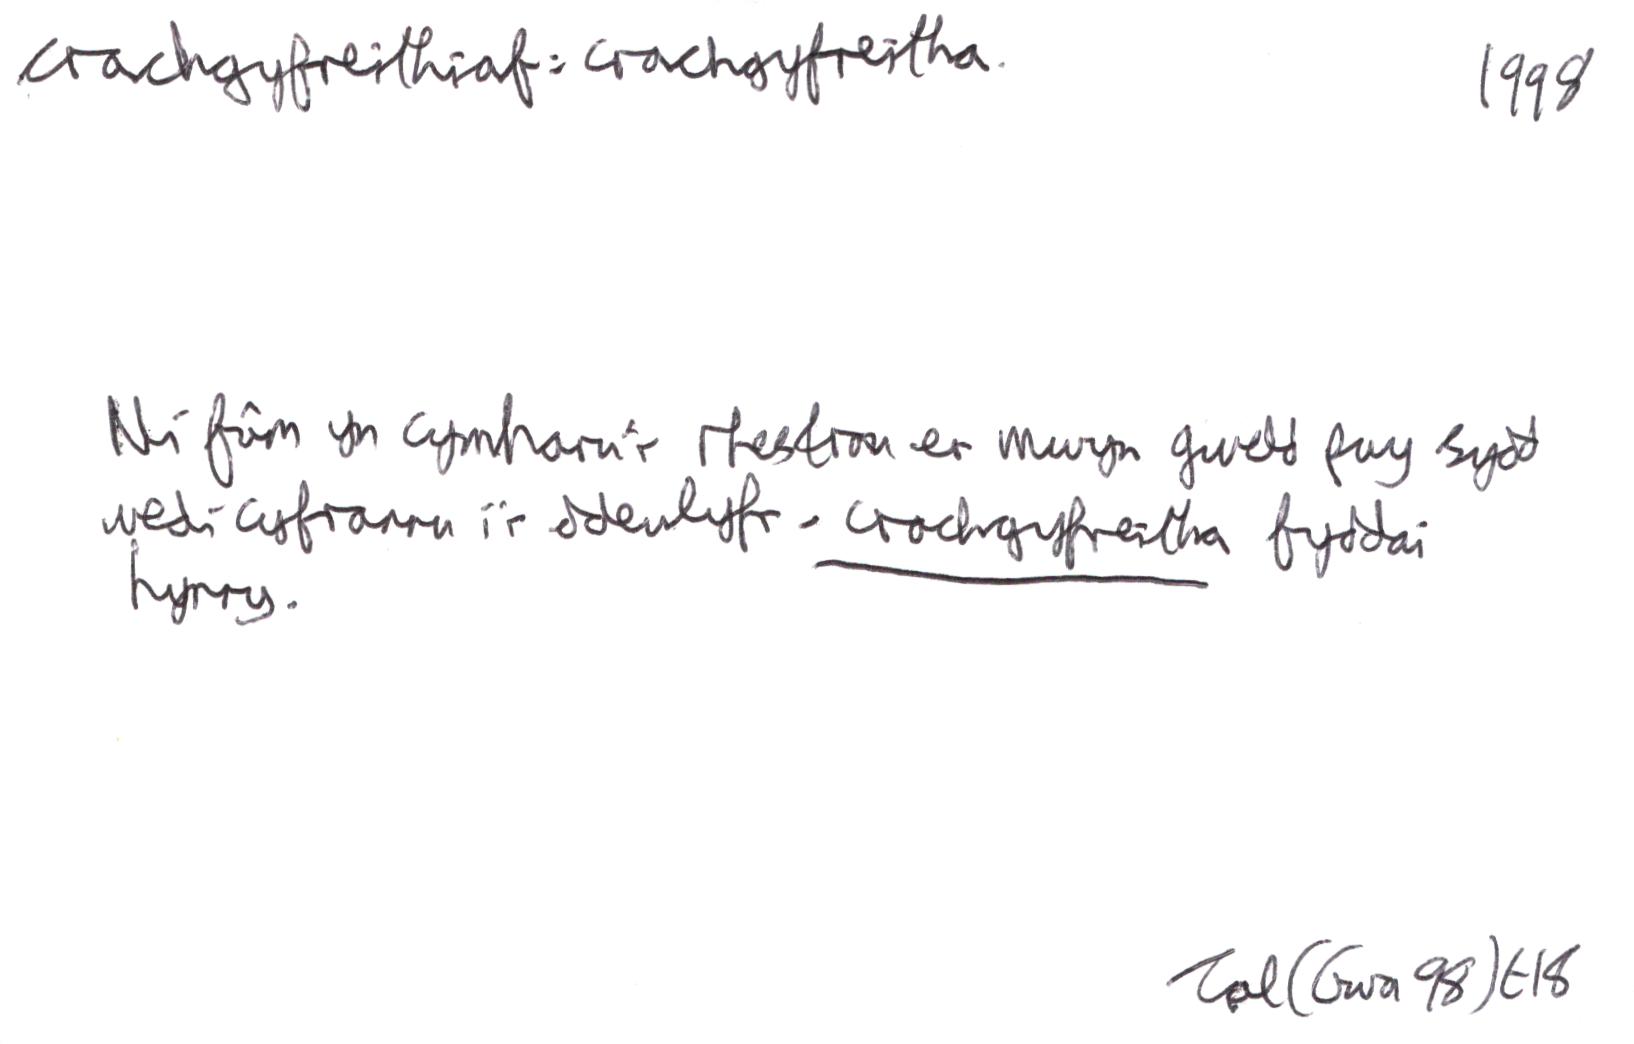 crachgyfreithiaf: crachgyfreitha.
1998
Ni fûm yn cymharu'r rhestrau er mwyn gweld pwy sydd
wedi cyfrannu i'r ddeulyfr - crachgyfreitha fyddai
hynny.
Tal (Gwa 98) t18